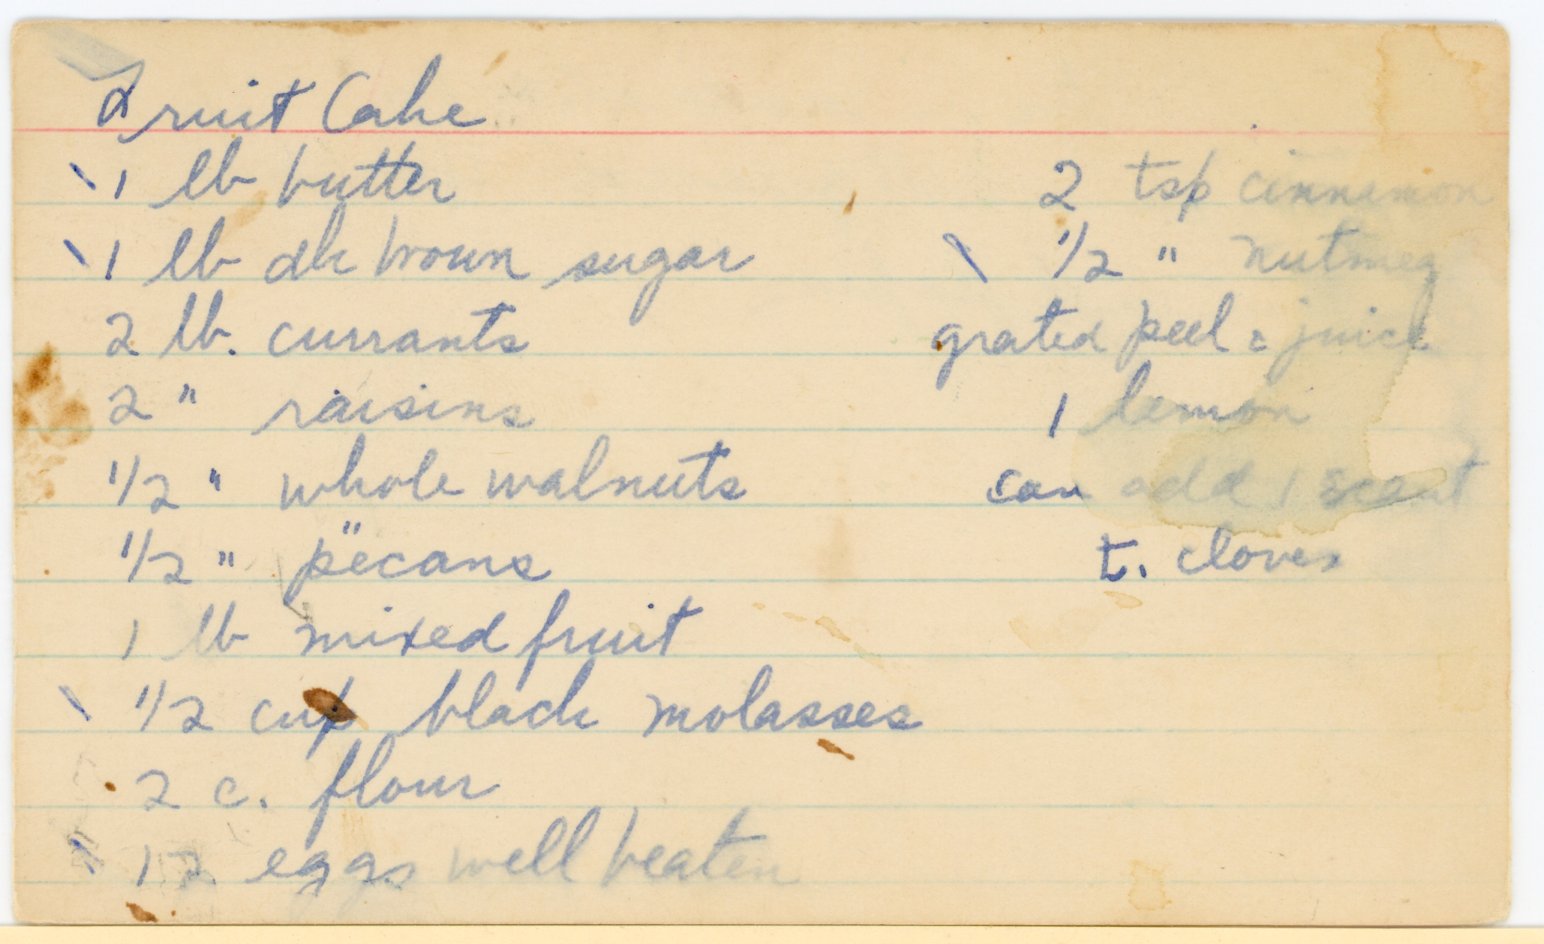 Fruit Cake
1 lb butter
1 lb dk brown sugar
2 lb. currants
2 " raisins
1/2 " whole walnuts
1/2 " " pecans
1 lb mixed fruit
1/2 cup black molasses
2 c. flour
12 eggs well beaten
2 tsp cinnamon
1/2 " nutmeg
grated peel & juice
1 lemon
can add 1 scant
t. cloves